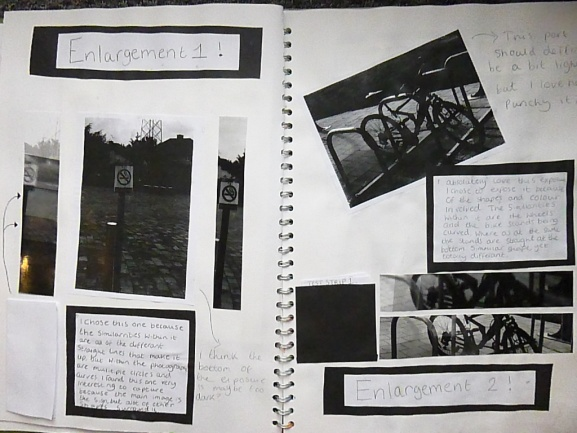 Enlargement 1!
I chose this one because
the similarities within it
are all of the different
straight lines that make it
up. But within the photograph
are multiple circles and
curves. I found this one very
interesting to capture
because the main image is
the sign but also the other
I think the
bottom of
the exposure
is maybe too
dark?
This part
should deff
be a bit
but I love
Punchy it
I absolutely love this exposure
I chose to expose it because
of the shapes and colour
involved. The similarities
within it are the wheels
and the bike stands being
curved. Where as at the same
the stands are straight at the
bottom. Similar shapes yet
totally different.
TEST STRIP 1
Enlargement 2!